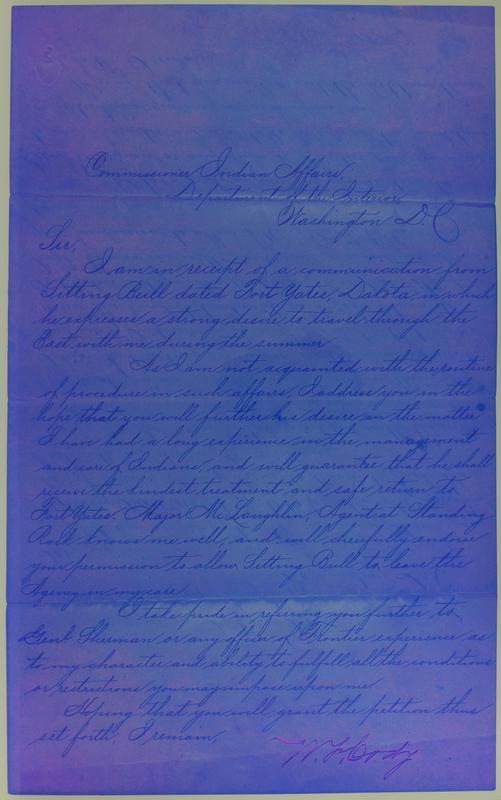 Commissioner Indian Affairs,
Department of the Interior
Washington D.C
Sir,
I am in receipt of a communication from
Sitting Bull dated Fort Yates, Dakota, in which
he expresses a strong desire to travel through the
East with me during the summer
As I am not acquainted with the routine
of procedure in such affairs, I address you in the
hope that you will further his desire in the matter
I have had a long experience in the management
and care of Indians, and will guarantee that he shall
receive the kindest treatment and safe return to
Fort Yates. Major McLaughlin, Agent at Standing
Rock knows me well, and will cheerfully endorse
your permission to allow Sitting Bull to leave the
Agency in my care.
I take pride in referring you further to
Genl Sherman or any officer of Frontier experience as
to my character and ability to fulfill all the conditions
or restrictions you may impose upon me
Hoping that you will grant the petition thus
set forth, I remain,
W. F. Cody